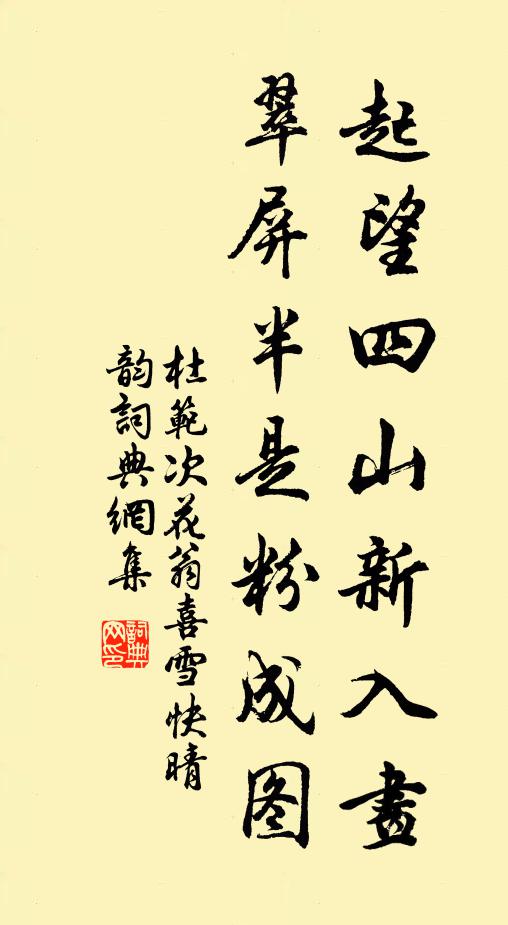 起望四山新入畫
翠屏半是粉成图
杜範次花翁喜雪快晴
韵詞典網集
詞典
网印